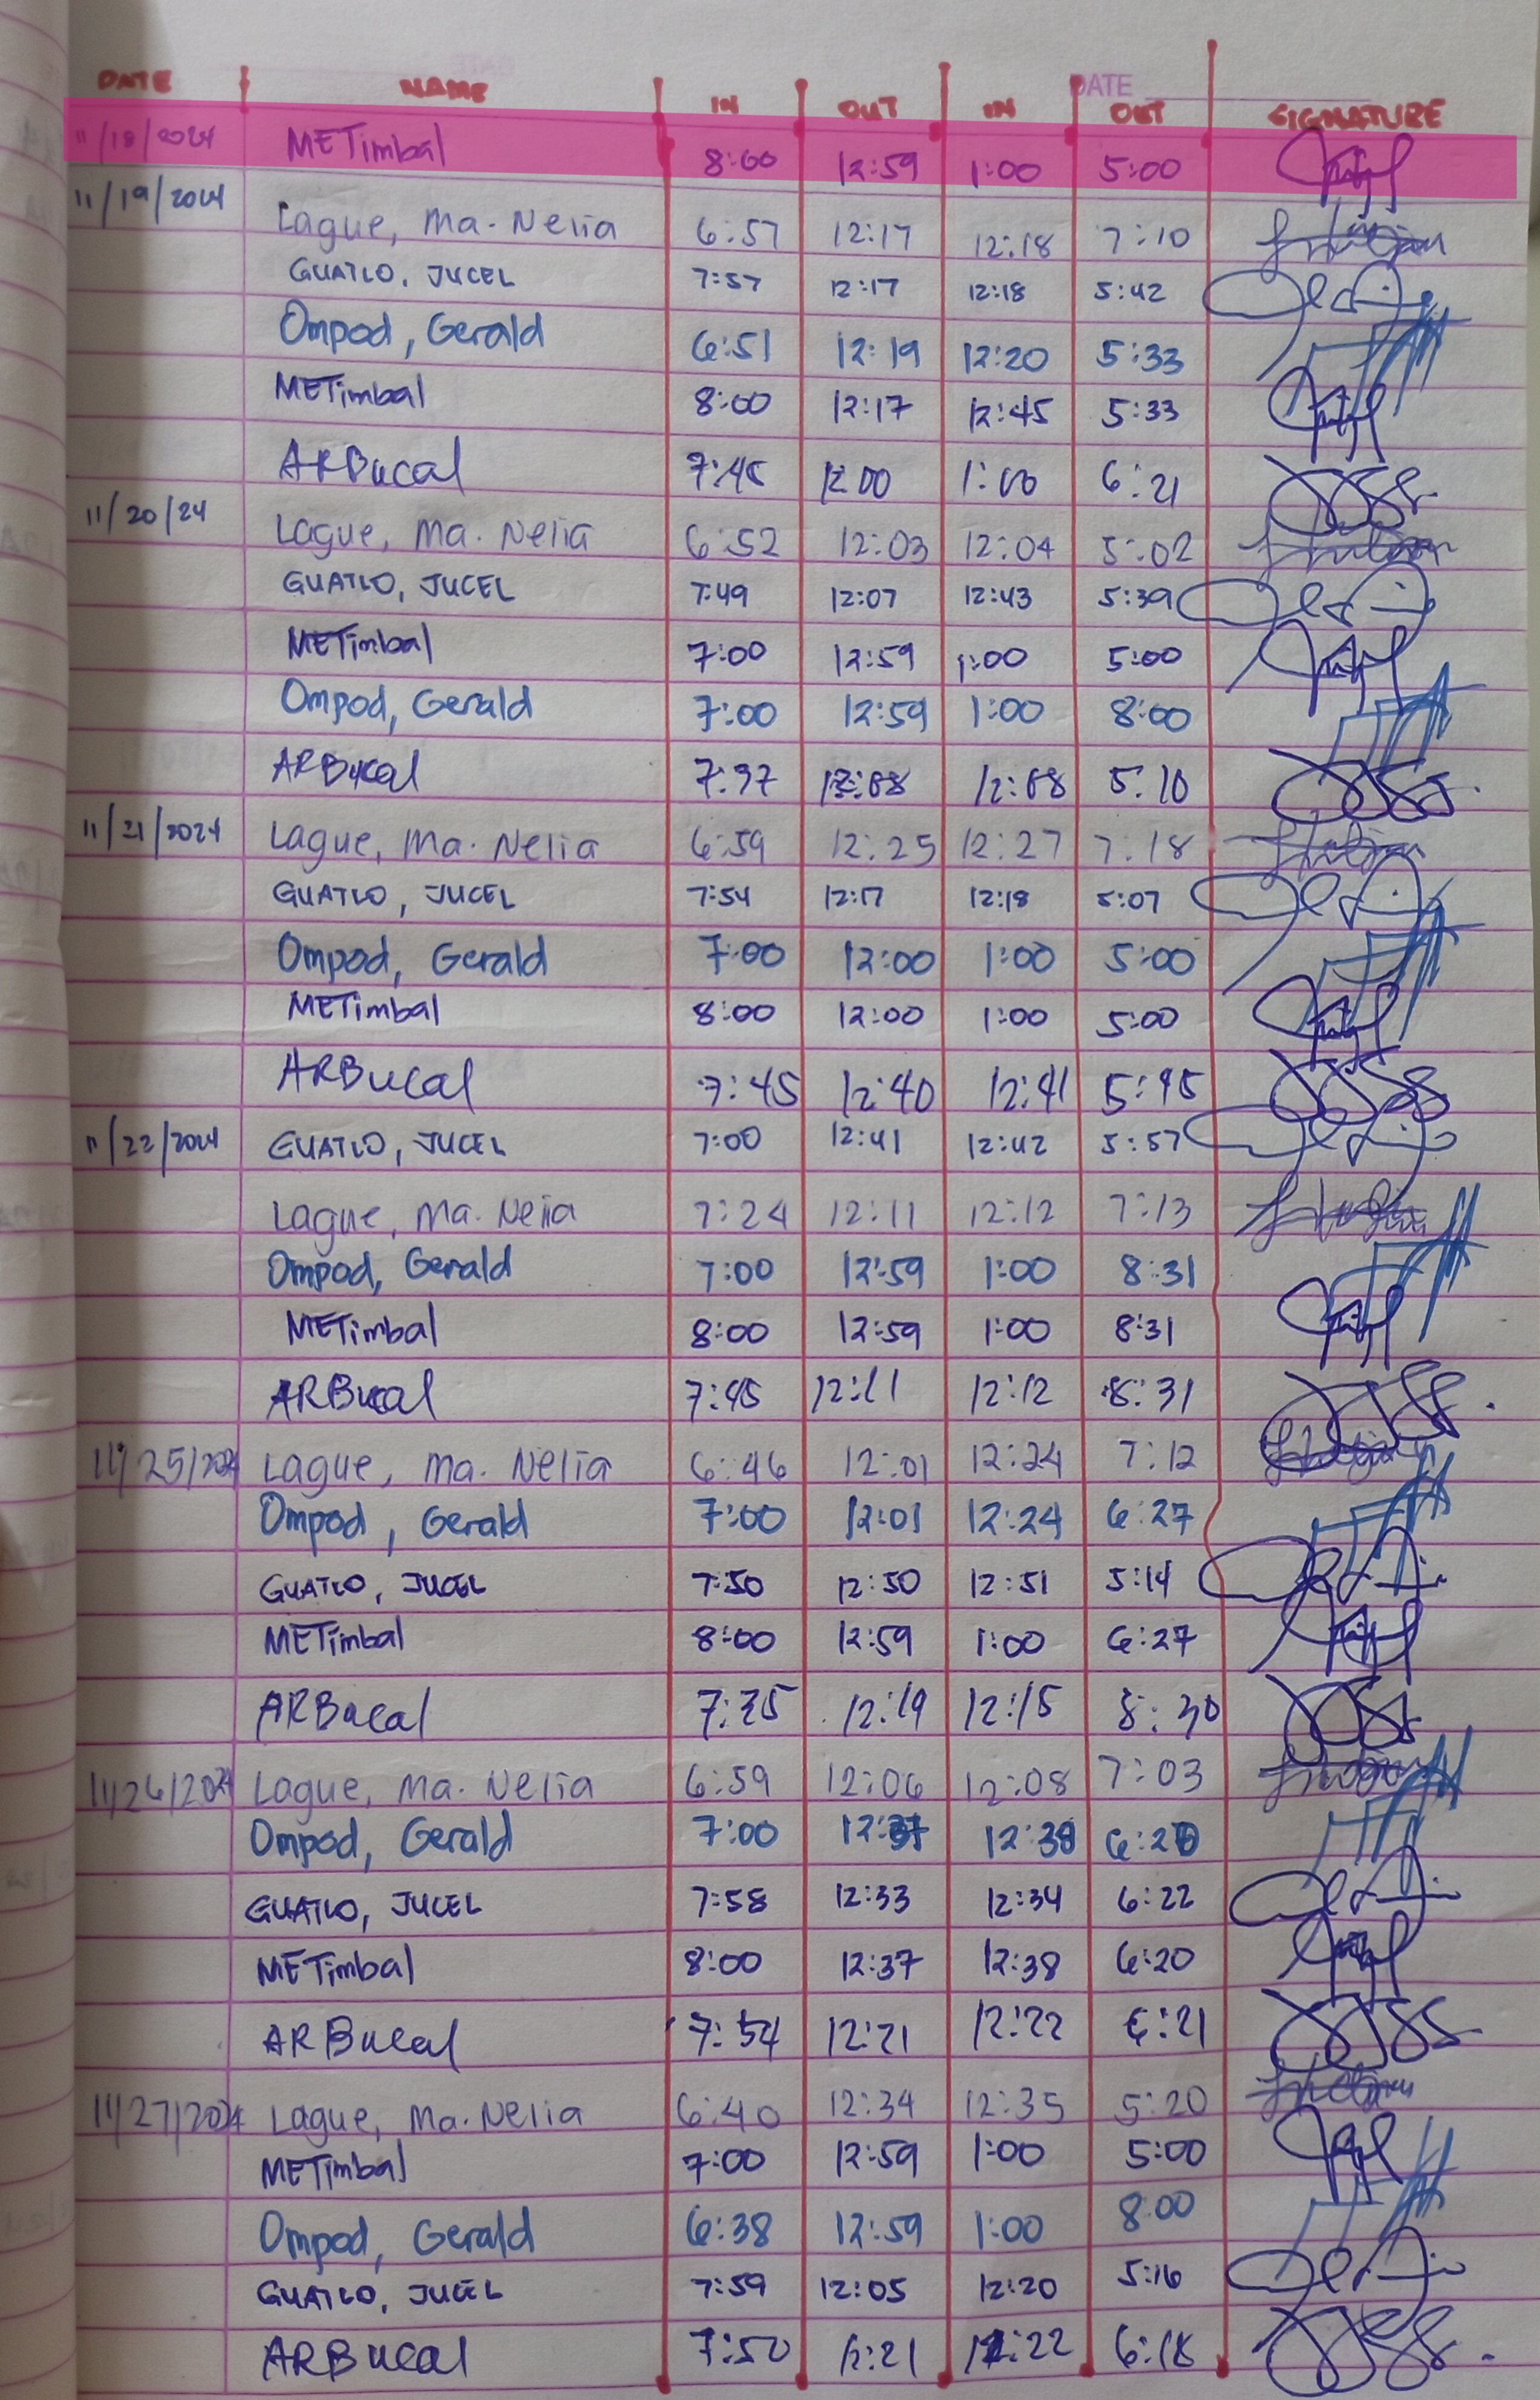 DATE
DATE NAME IN OUT IN OUT SIGNATURE
11/18/2024 METimbal 8:00 12:59 1:00 5:00
11/19/2024 Lague, Ma. Nelia 6:57 12:17 12:18 7:10
GUATLO, JUCEL 7:57 12:17 12:18 5:42
Ompod, Gerald 6:51 12:19 12:20 5:33
METimbal 8:00 12:17 12:45 5:33
ARBucal 7:45 12:00 1:00 6:21
11/20/24 Lague, Ma. Nelia 6:52 12:03 12:04 5:02
GUATLO, JUCEL 7:49 12:07 12:43 5:39
METimbal 7:00 12:59 1:00 5:00
Ompod, Gerald 7:00 12:59 1:00 8:00
ARBucal 5:10
11/21/2024 Lague, Ma. Nelia 6:59 12:25 12:27 7:18
GUATLO, JUCEL 7:54 12:17 12:18 5:07
Ompod, Gerald 7:00 12:00 1:00 5:00
METimbal 8:00 12:00 1:00 5:00
ARBucal 7:45 12:40 12:41 5:45
11/22/2024 GUATLO, JUCEL 7:00 12:41 12:42 5:57
Lague, Ma. Nelia 7:24 12:11 12:12 7:13
Ompod, Gerald 7:00 12:59 1:00 8:31
METimbal 8:00 12:59 1:00 8:31
ARBucal 7:45 12:11 12:12 8:31
11/25/2024 Lague, Ma. Nelia 6:46 12:01 12:24 7:12
Ompod, Gerald 7:00 12:01 12:24 6:27
GUATLO, JUCEL 7:50 12:50 12:51 5:14
METimbal 8:00 12:59 1:00 6:27
ARBucal 7:35 12:15 8:30
11/26/2024 Lague, Ma. Nelia 6:59 12:06 12:08 7:03
Ompod, Gerald 7:00 12:37 12:38 6:20
GUATLO, JUCEL 7:58 12:33 12:34 6:22
METimbal 8:00 12:37 12:38 6:20
ARBucal 7:54 12:21 12:22 6:21
11/27/2024 Lague, Ma. Nelia 6:40 12:34 12:35 5:20
METimbal 7:00 12:59 1:00 5:00
Ompod, Gerald 6:38 12:59 1:00 8:00
GUATLO, JUCEL 7:59 12:05 12:20 5:16
ARBucal 7:50 12:21 12:22 6:18